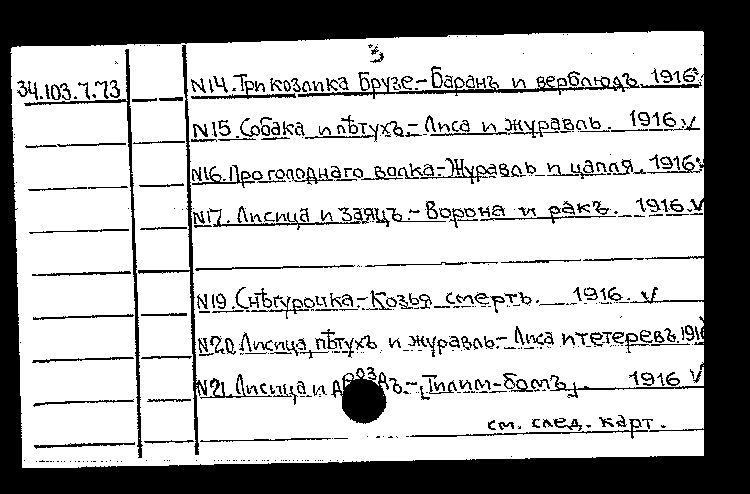 3
34.103.7.73 N14. Три козлика Брузе.-Баранъ и верблюдъ. 1916 v
N15. Собака и пѣтухъ.-Лиса и журавль. 1916 v
N16. Про голоднаго волка-Журавль и цапля. 1916 v
N17. Лисица и заяцъ.-Ворона и ракъ. 1916. v
N19. Снѣгурочка.-Козья смерть. 1916. v
N20. Лисица, пѣтухъ и журавль-Лиса и тетеревъ. 1916
N21. Лисица и дроздъ.-„Тилим-бомъ„. 1916 v
см. след. карт.